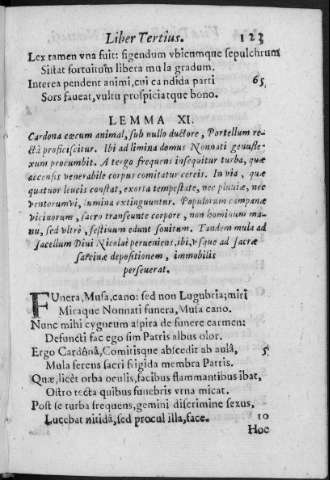 Liber Tertius. 123
Lex tamen vna fuit: figendum vbicumque sepulchrum
Sistat fortuitum libera mula gradum.
Interea pendent animi, cui candida parti 65
Sors faueat, vultu prospiciatque bono.
LEMMA XI.
Cardona cœcum animal, sub nullo ductore, Portellum re-
ctà proficiscitur. Ibi ad limina domus Nonnati genufle-
xum procumbit. A tergo frequens insequitur turba, quæ
accensis venerabile corpus comitatur cereis. In via, quæ
quatuor leucis constat, exorta tempestate, nec pluuiæ, nec
ventorumvi, lumina extinguuntur. Populorum campanæ
vicinorum, sacro transeunte corpore, non hominum ma-
nu, sed vltrò, festiuum edunt sonitum. Tandem mula ad
sacellum Diui Nicolai perueniens, ibi, vsque ad sacræ
sarcinæ depositionem, immobilis
perseuerat.
FVnera, Musa, cano: sed non Lugubria; miri
Miraque Nonnati funera, Musa cano.
Nunc mihi cygneum aspira de funere carmen:
Defuncti fac ego sim Patris albus olor.
Ergo Cardonâ, Comitisque abscedit ab aulâ, 5
Mula ferens sacri frigida membra Patris.
Quæ, licèt orba oculis, facibus flammantibus ibat,
Ostro tecta quibus funebris vrna micat.
Post se turba frequens, gemini discrimine sexus,
Lucebat nitidâ, sed procul illa, face. 10
Hoc